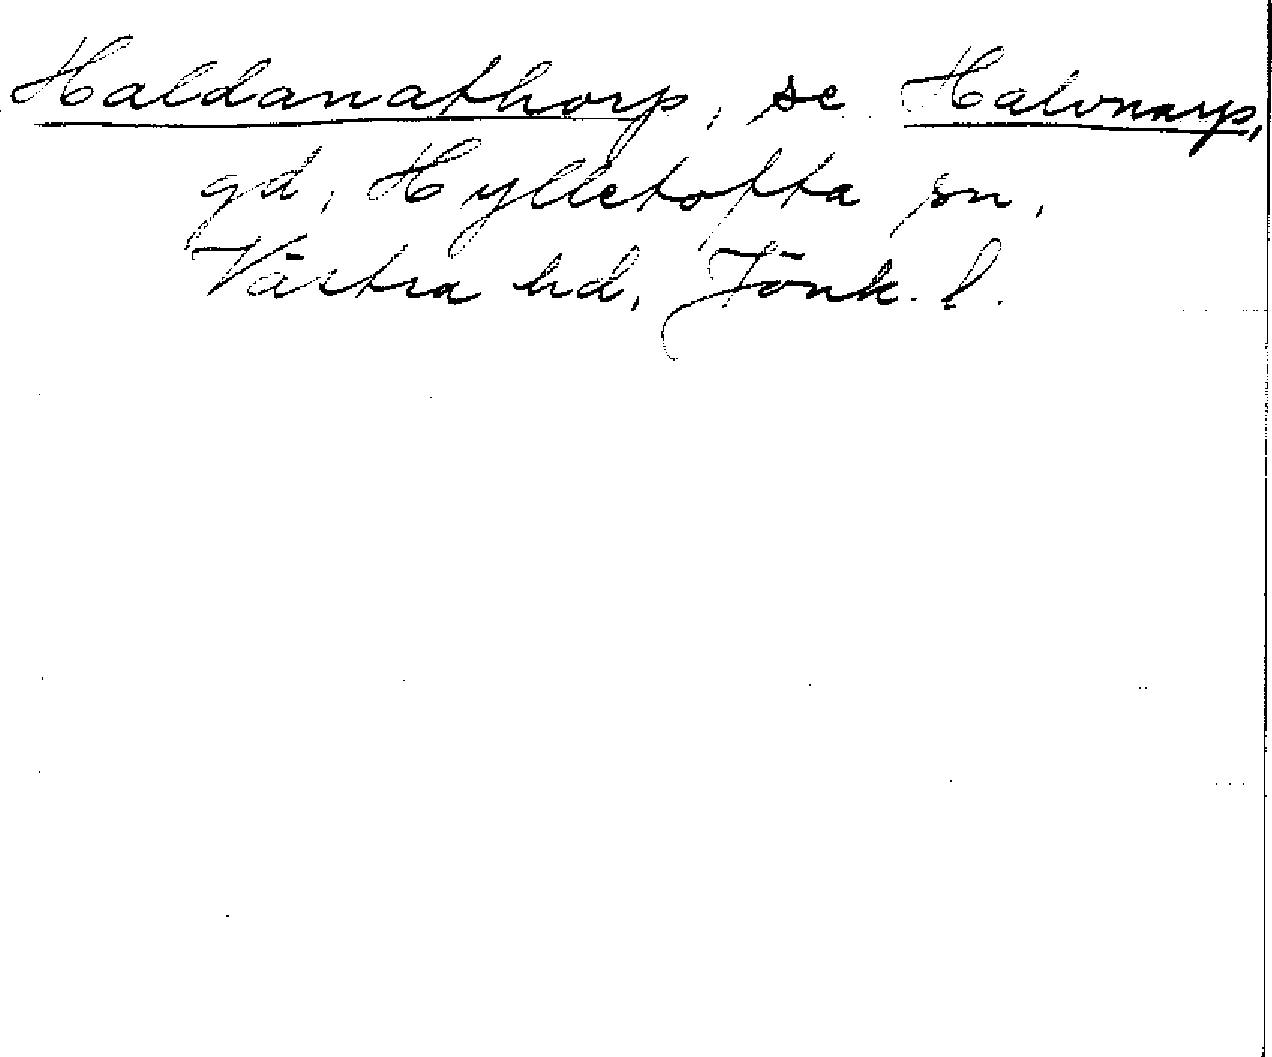 Haldanathorp, se Halvnarp,
gd, Hylletofta sn,
Västra hd, Jönk. l.